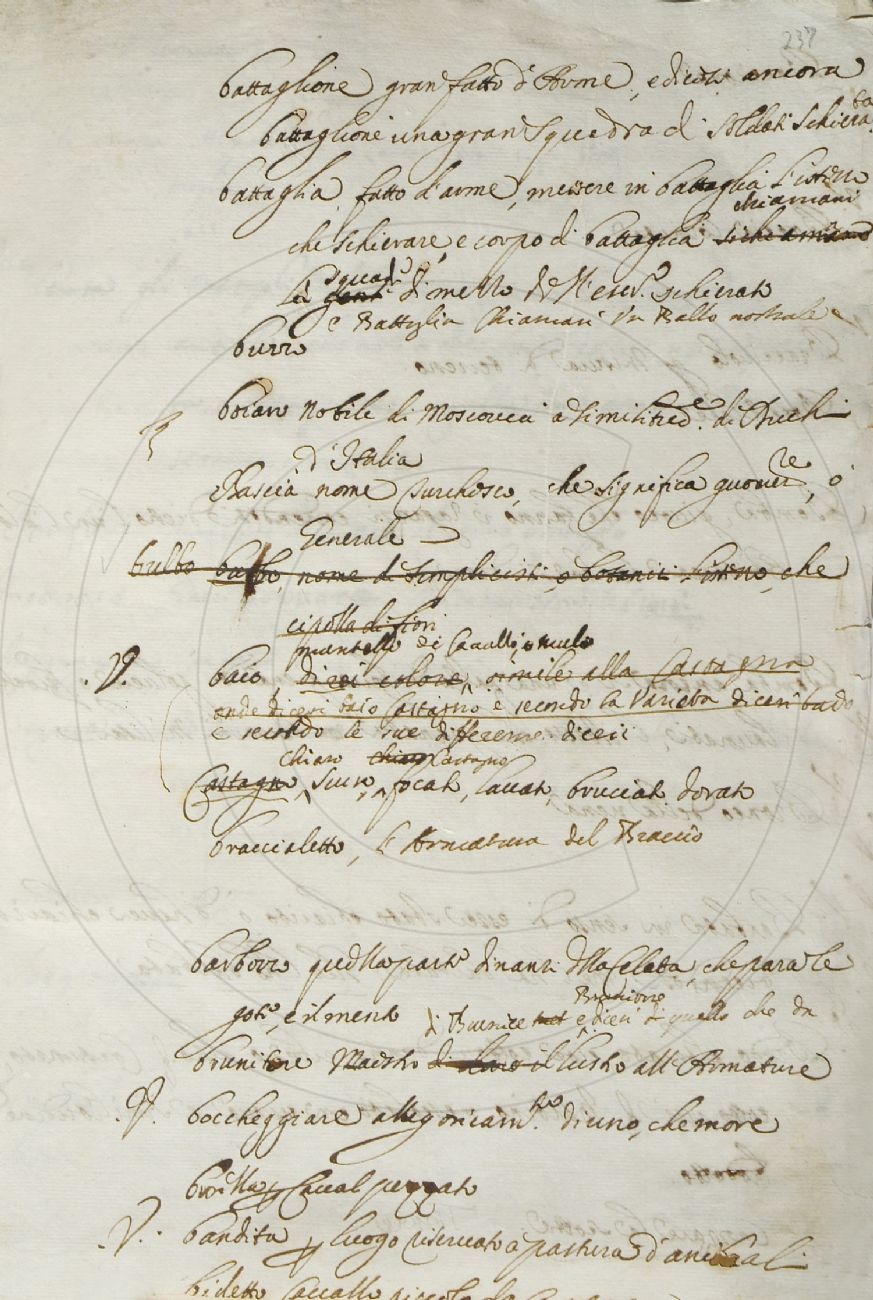 237
battaglione gran fatto d'Arme, e dicesi ancora
battaglione una gran squadra di soldati schierata
battaglia fatto d'arme, mettere in battaglia l'istesso
chiamasi
che schierare, e corpo di battaglia si chiamano
squad.
la gente di mezzo dell'eserc.o schierato
e Battaglia chiamasi un Ballo nostrale
burro
boiaro Nobile di Moscovia a similitud.e di Duchi
d'Italia
Bascià nome Turchesco, che significa governre, ò
Generale
bulbo bulbo, nome di simplicisti, o botanici l'istesso, che
cipolla di fiori
mantello di Cavallo, o mulo
.V. baio, dicesi colore, simile alla Castagna
onde dicesi baio Castagno e secondo la varietà dicesi baio
e secondo le sue differenze dicesi
Chiaro Chiaro Castagno
Castagno, scuro, focato, lavato, bruciato dorato
braccialetto, l'Armatura del Braccio
barbozzo quella parte dinanzi della Celata, che para le
gote, e il mento
Brunitore
di Brunire e dicesi di quello che da
brunitore Maestro di dare il lustro all'Armature
.V. boccheggiare allegoricam.te di uno, che more
brilla Caval pezzato
.V. bandita luogo riservato a pastura d'animali
bidetto Cavallo piccolo da